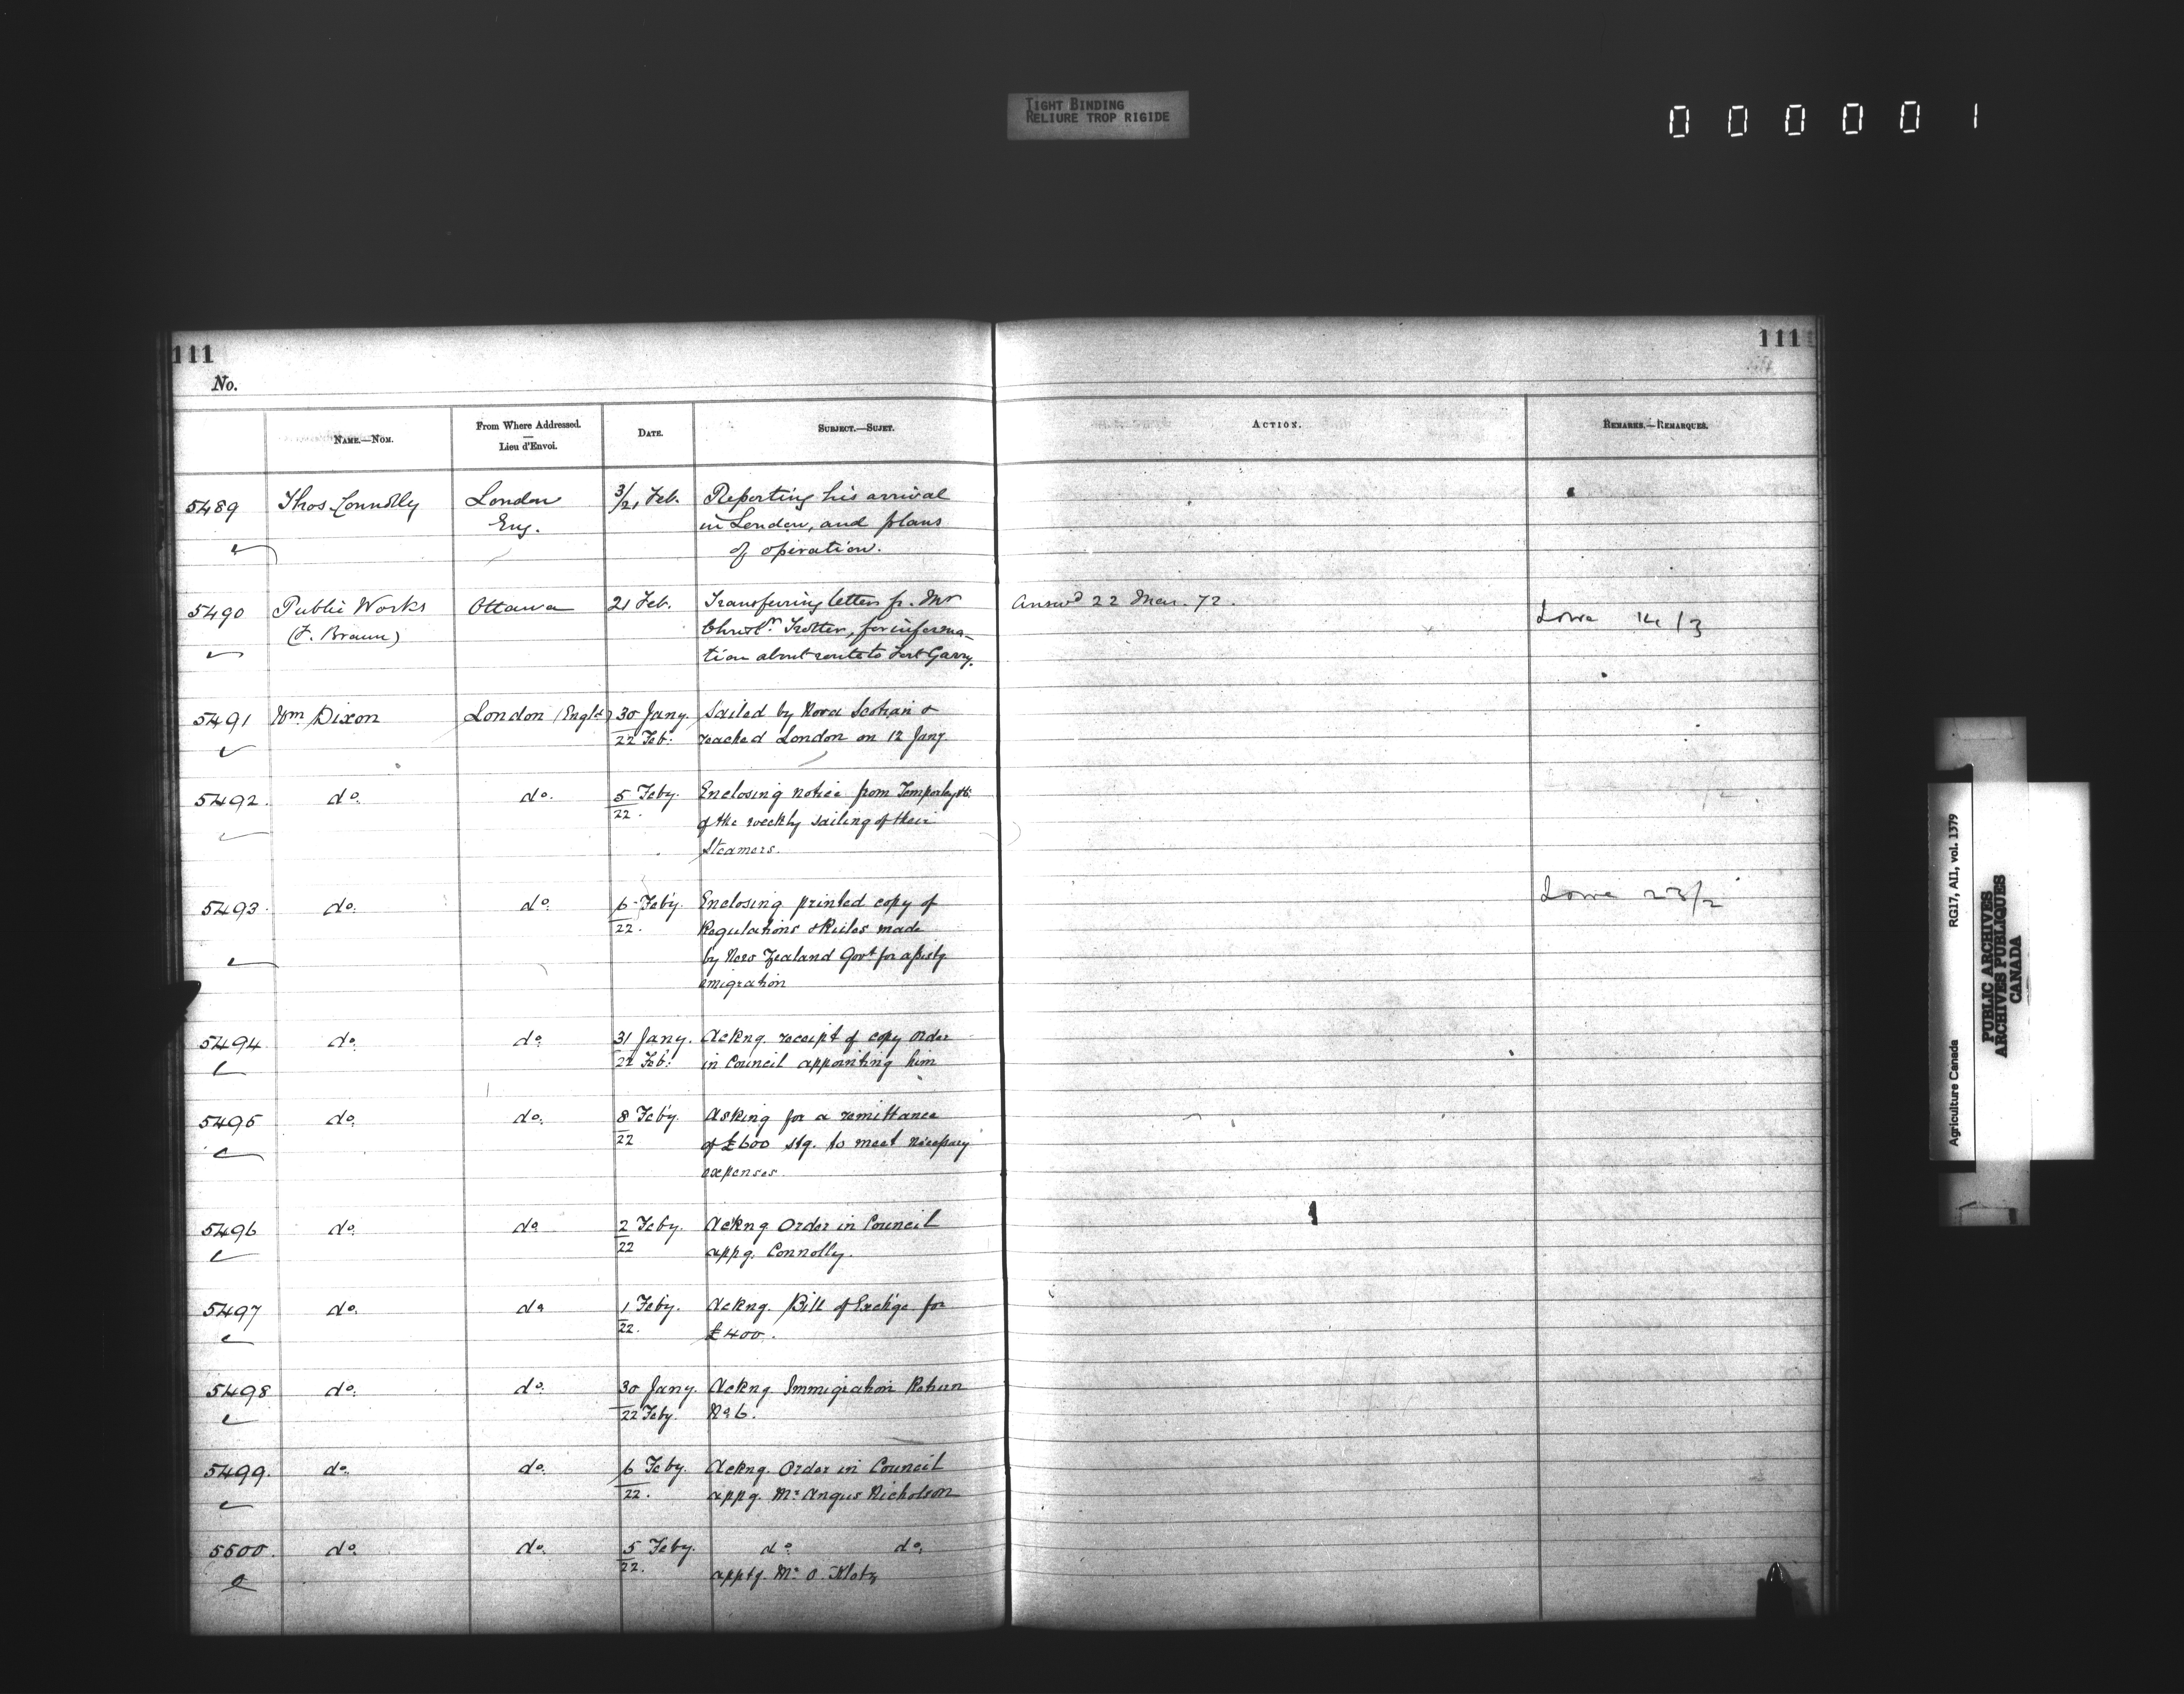 TIGHT BINDING
RELIURE TROP RIGIDE
0 0 0 0 0 1
111
111
No.
NAME.—NOM.
From Where Addressed.
Lieu d'Envoi.
DATE.
SUBJECT.—SUJET.
ACTION.
REMARKS.—REMARQUES.
5489 Thos Connolly London 3/21 Feb. Reporting his arrival
Eng. in London, and plans
of operation.
5490 Public Works Ottawa 21 Feb. Transferring letter fr. Mr Answd 22 Mar. 72. Lowe 14/3
(F. Braun) Christr. Trotter, for informa-
tion about route to Fort Garry.
5491 Wm Dixon London (Engld) 30 Jany. Sailed by Nova Scotian &
22 Feb. reached London on 12 Jany
5492. do. do. 5 Feby. Enclosing notice from
22. of the weekly sailing of their
Steamers.
5493. do. do. 6 Feby. Enclosing printed copy of Lowe 23/2
22. Regulations & Rules made
by New Zealand Govt for assistg
emigration
5494. do. do. 31 Jany. Ackng. receipt of copy Order
22 Feb. in Council appointing him
5495 do. do. 8 Feby. Asking for a remittance
22 of £600 stg. to meet necessary
expenses.
5496 do. do 2 Feby. Ackng Order in Council
22 appg. Connolly.
5497 do. do 1 Feby. Ackng. Bill of Exchge for
22. £400.
5498 do. do. 30 Jany. Ackng Immigration Return
22 Feby. No 6.
5499. do. do. 6 Feby. Ackng. Order in Council
22. appg. Mr Angus Nicholson
5500. do. do. 5 Feby. do. do.
22. apptg. Mr O. Klotz
Agriculture Canada RG17, AII, vol. 1379
PUBLIC ARCHIVES
ARCHIVES PUBLIQUES
CANADA